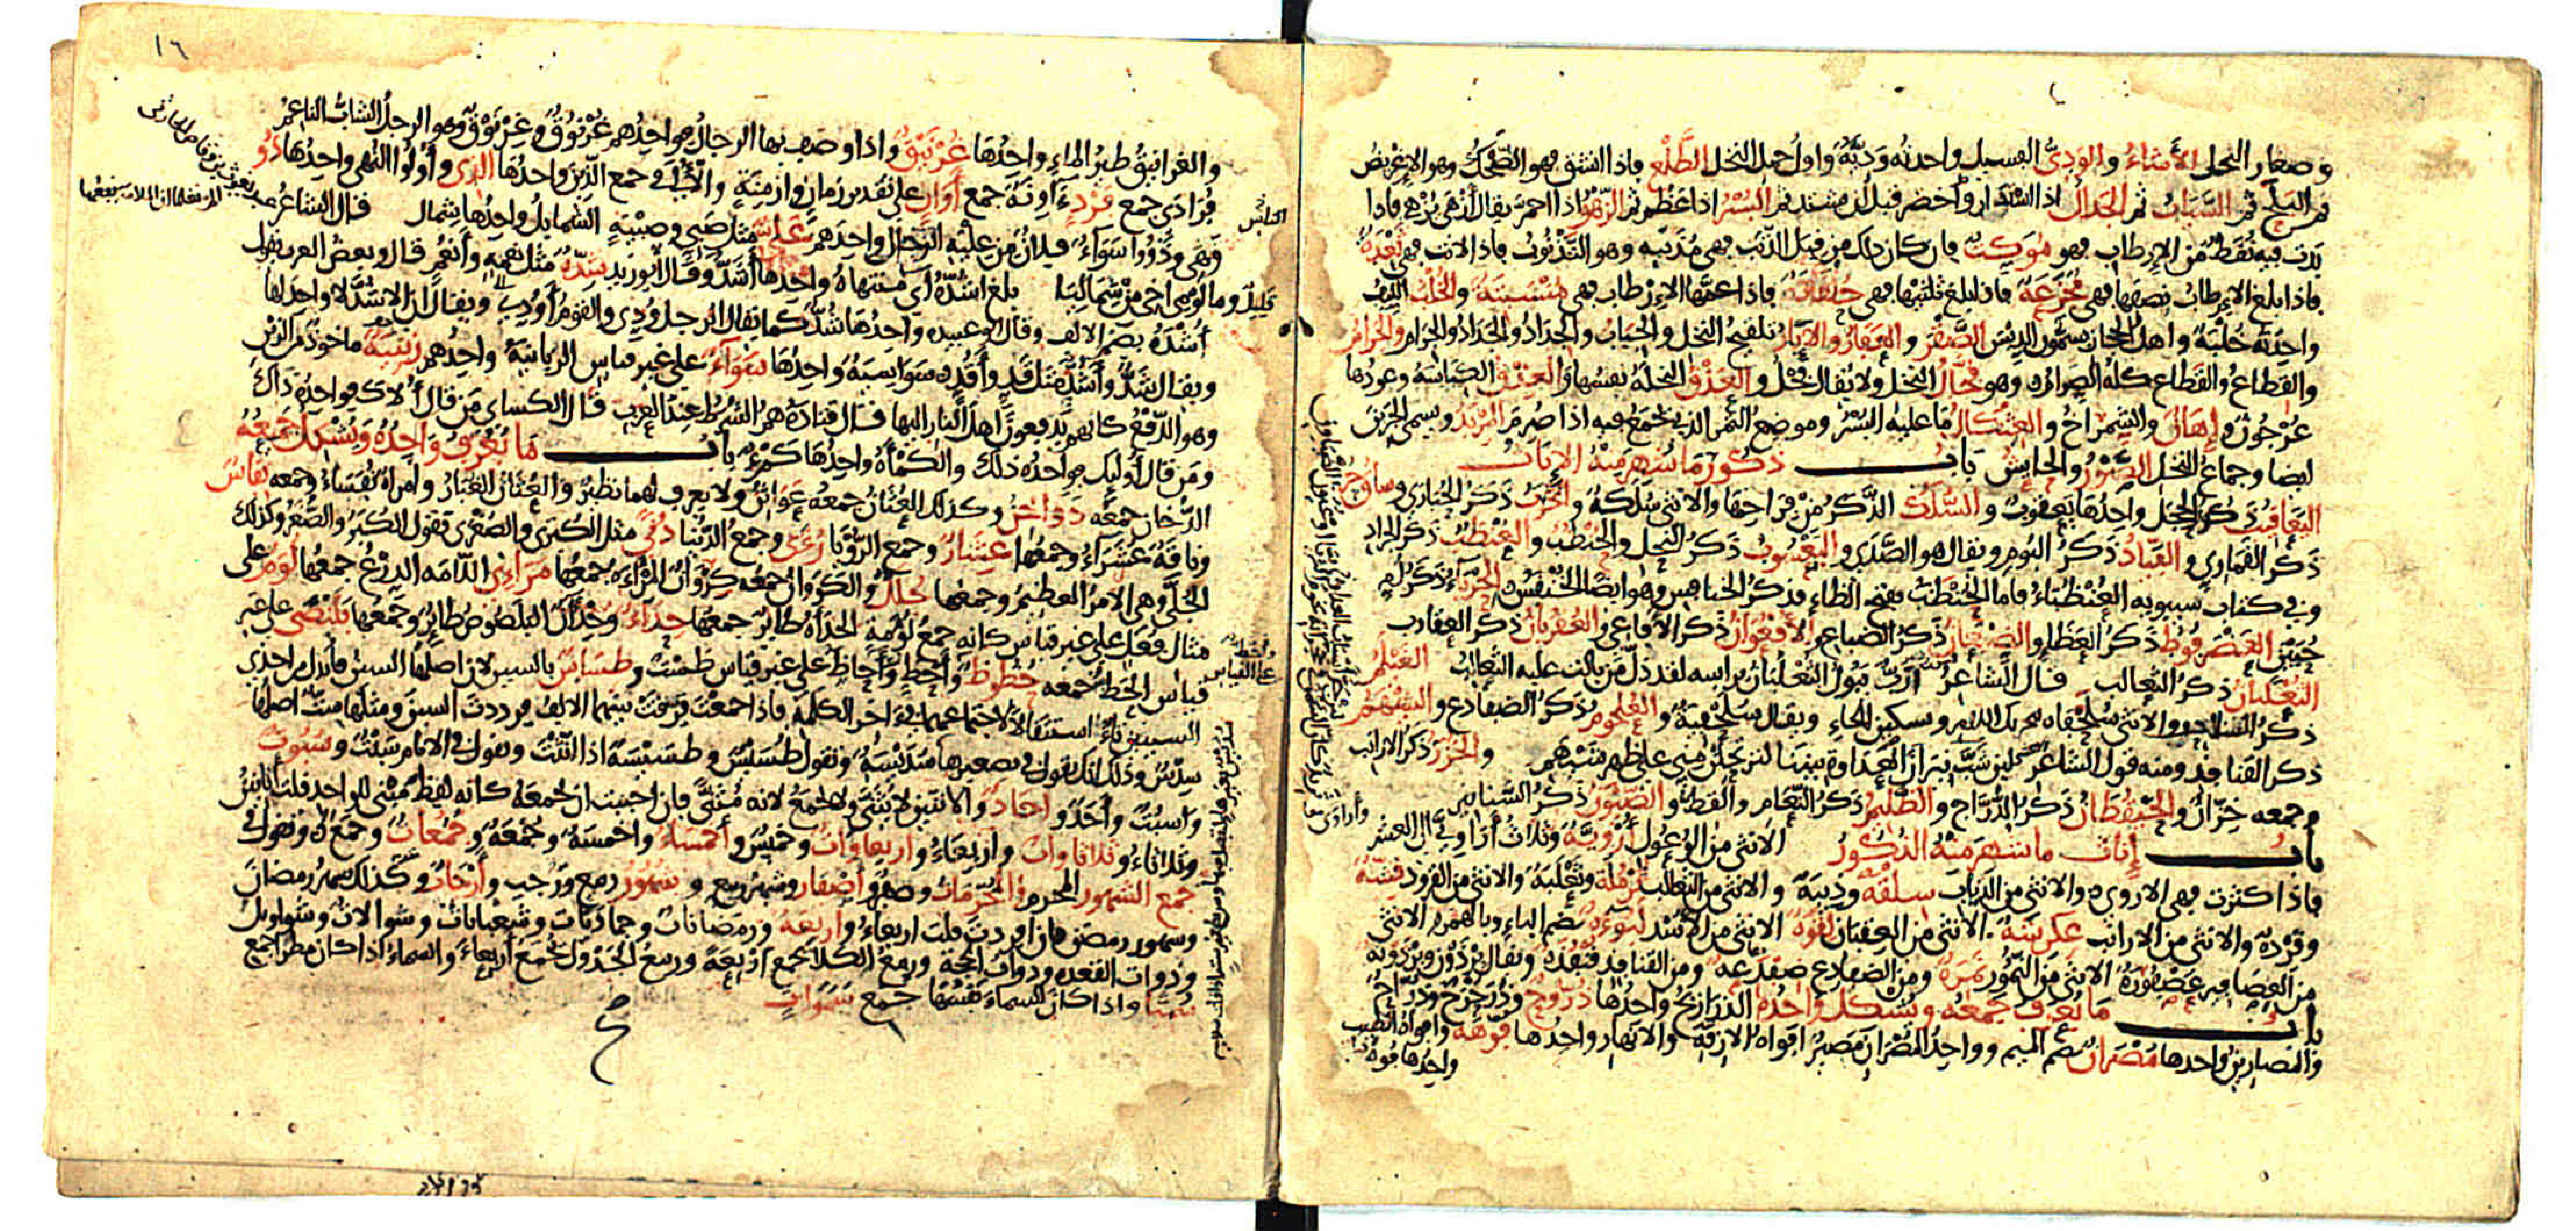 وصغار النخل الأشاء والودي الفسيل واحدته ودية واول حمل النخل الطلع فاذا انشق فهو الضحك وهو الاغريض
ثم البلح ثم السياب ثم الجدال اذا استدار واخضر قبل ان يشتد ثم البسر اذا عظم ثم الزهو اذا احمر يقال ازهى يزهي فاذا
بدت فيه نقط من الارطاب فهو موكت فان كان ذلك من قبل الذنب فهي مذنبة وهو التذنوب فاذا لانت فهي ثعدة
فاذا بلغ الارطاب نصفها فهي مجزعة فاذا بلغ ثلثيها فهي حلقانة فاذا عمها الارطاب فهي منسبتة والخلب الليف
واحدته خلبة واهل الحجاز يسمون الدبس الصقر والعفار والابار تلقيح النخل والجباب والجداد والجداد والجرام والجرام
والقطاع والقطاع كله الصرام وهو فحال النخل ولا يقال فحل والعذق النخلة نفسها والعذق الكباسة وعودها
عرجون واهان والشمراخ والعثكال ما عليه البسر وموضع التمر الذي يجمع فيه اذا صرم المربد ويسمى الجرين
ايضا وجماع النخل الصور والحايش باب ذكور ما شهر منه الاناث
اليعاقيب ذكور الحجل واحدها يعقوب والسلك الذكر من فراخها والانثى سلكة والخرب ذكر الحبارى وساق حر
ذكر القماري والفياد ذكر البوم ويقال هو الصدى واليعسوب ذكر النحل والحنظب والعنظب ذكر الجراد
وفي كتاب سيبويه العنظباء فاما الحنظب بفتح الظاء فذكر الخنافس وهو ايضا الخنفس الحرباء ذكر ام
حبين العضرفوط ذكر العظاء والضبعان ذكر الضباع والافعوان ذكر الافاعي والعقربان ذكر العقارب
الثعلبان ذكر الثعالب قال الشاعر ارب يبول الثعلبان براسه لقد ذل من بالت عليه الثعالب الغيلم
ذكر السلاحف والانثى سلحفاة بتحريك اللام وتسكين الحاء ويقال سلحفية والعلجوم ذكر الضفادع والشيهم
ذكر القنافذ ومنه قول الشاعر لئن شب نيران العداوة بيننا لترتحلن مني على ظهر شيهم والخزز ذكر الارانب
وجمعه خزان والحيقطان ذكر الدراج والظليم ذكر النعام والقط والضيون ذكر السنانير
باب إناث ما شهر منه الذكور الانثى من الوعول أروية وثلاث اراوي الى العشر
فاذا كثرت فهي الاروى والانثى من الذياب سلقة وذيبة والانثى من الثعالب ثرملة وثعلبة والانثى من القرود قشة
وقردة والانثى من الارانب عكرشة الانثى من العقبان لقوة الانثى من الاسد لبوءة بضم الباء وبالهمز الانثى
من العصافير عصفورة الانثى من النمور نمرة ومن الضفادع ضفدعة ومن القنافذ قنفذة ويقال برذون وبرذونة
باب ما يعرف جمعه ويشكل واحده الذراريح واحدها ذروح وذرحرح وذراح
والمصارين واحدها مصران بضم الميم وواحد المصران مصير افواه الازقة والانهار واحدها فوهة وافواه الطيب
واحدها فوه
١٦
والغرانيق طير الماء واحدها غرنيق واذا وصف بها الرجال فواحدهم غرنوق وغرنوق وهو الرجل الشاب الناعم
فرادى جمع فرد آونة جمع اوان على تقدير زمان وازمنة والألى في جمع الذين واحدها الذي وأولوا النهى واحدها ذو
وهي وذووا سواء فلان من علية الرجال واحدهم علي مثل صبي وصبية الشمايل واحدها شمال قال الشاعر
قليل وما لومي اخي من شماليا بلغ اشده اي منتهاه واحدها أشد وقال ابو زيد شدة مثل نعمة وأنعم قال وبعض العرب يقول
أشده بضم الالف وقال ابو عبيدة واحدها شد كما يقال الرجل ود والقوم أود ويقال ان الاشد لا واحد لها
ويقال شد وأشد مثل قد وأقد سواسية واحدها سواء على غير قياس الزبانية واحدهم زبنية ماخوذ من الزبن
وهو الدفع كانهم يدفعون اهل النار اليها قال قتادة هم الشرط عند العرب قال الكساي من قال ألاك فواحده ذاك
ومن قال أوليك فواحده ذلك والكمأة واحدها كمء باب ما يعرف واحده ويشكل جمعه
الدخان جمعه دواخن وكذلك العثان جمعه عواثن ولا يعرف لهما نظير والعثان الغبار وامراة نفساء وجمعه نفاس
وناقة عشراء وجمعها عشار وجمع الرؤيا رؤى وجمع الدنيا دنى مثل الكبرى والصغرى تقول الكبر والصغر وكذلك
الجلى وهي الامر العظيم وجمعها جلل والكروان جمعه كروان المرآة جمعها مراءٍ اللامة الدرع جمعها لؤم على
مثال فعل على غير قياس كانه جمع لؤمة الحدأة طائر جمعها حداء وحدان البلصوص طائر وجمعها بلنصى على غير
قياس الحظ جمعه حظوظ وأحظ وأحاظ على غير قياس طست وطساس بالسين لان اصلها السين فابدل من احدى
السينين تاء استثقالا لاجتماعهما في اخر الكلمة فاذا جمعت فرقت بينهما الالف فرددت السين ومثلها ست اصلها
سدس وذلك انك تقول في تصغيرها سديسة وتقول طسيس وطسيسة اذا انثت وتقول في الايام سبت وسبوت
واسبت وأحد وآحاد والاثنين لا يثنى ولا يجمع لانه مثنى فان احببت ان تجمعه كانه لفظ مبني للواحد قلت اثانين
وثلاثاء وثلاثاوات وأربعاء واربعاوات وخميس وأخمساء واخمسة وجمعة وجمعات وجمع وتقول
جمع الشهور المحرم والمحرمات وصفر وأصفار وشهر ربيع وشهور ربيع ورجب وأرجاب وكذلك شهر رمضان
وشهور رمضان فان افردت قلت اربعاء واربعة ورمضانات وجماديات وشعبانات وشوالات وشواويل
وذوات القعدة وذوات الحجة وربيع الكلا يجمع اربعة وربيع الجدول يجمع أربعاء والسماء اذا كان مطرا جمع
سميا واذا كان السماء نفسها جمع سموات